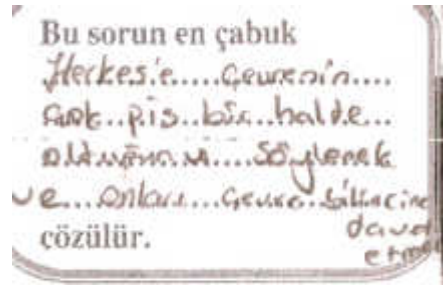 Bu sorun en çabuk
Herkes'e.....Çevrenin....
çok..pis..bir..halde...
olduğunu....söylemek
ve...onları...Çevre..bilincine
davet
etme
çözülür.